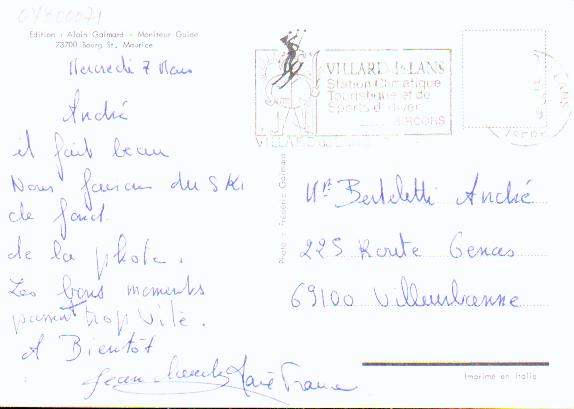 04300071
Edition : Alain Gaimard - Moniteur Guide
73700 Bourg St. Maurice
Mercredi 7 Mars
André
il fait beau
Nous faisons du SKi
de fond
de la photo.
Les bons moments
passent trop vite.
A Bientôt
Jean Claude Marie France
VILLARD de LANS
Station Climatique
Touristique et de
Sports d'hiver
VERCORS
VILLARD de LANS
Photo : Frédéric Gaimard
Mr Berteletti André
225 Route Genas
69100 Villeurbanne
Imprimé en Italie